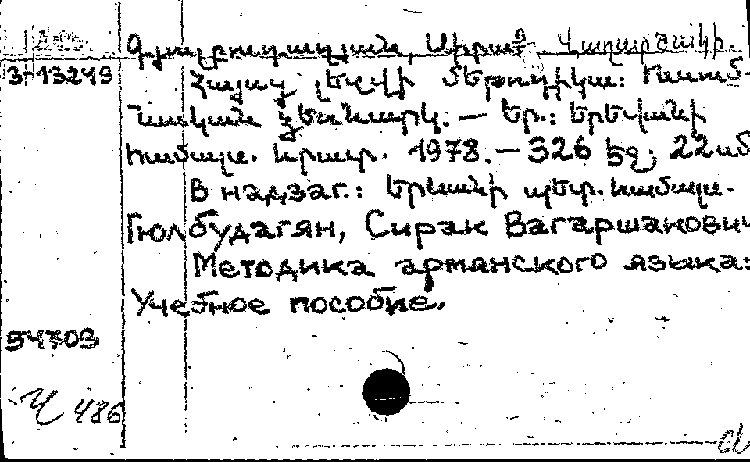 Գյուլբուդաղյան, Սիրակ Վաղարշակի.
3-13249
Հայոց լեզվի մեթոդիկա: Ուսում-
նական ձեռնարկ. — Եր.: Երևանի
համալս. հրատ. 1978. — 326 էջ; 22սմ
В надзаг.: Երևանի պետ. համալս.
Гюлбудагян, Сирак Вагаршакович
Методика армянского языка:
Учебное пособие.
54709
486